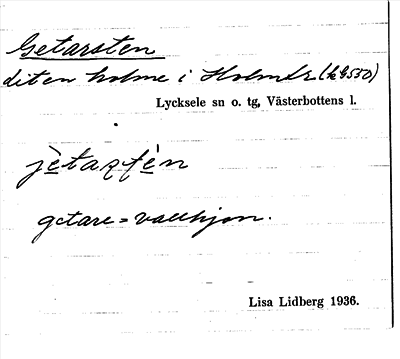 Getarsten
liten holme i Holmtr (bl 9550)
Lycksele sn o. tg, Västerbottens l.
jètaʂtè̩n
getare = vallhjon.
Lisa Lidberg 1936.